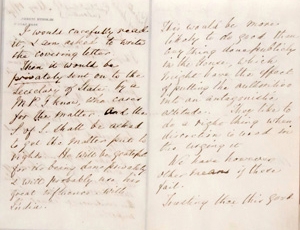 I would carefully read
it, I am asked to write
the covering letter
Then it would be
privately sent on to the
Secretary of State by a
M P I know, who cares
for the matter. And the
S of S. shall be asked
to get the matter put to
rights. He will be grateful
for its being done privately
& will probably use his
great influence with
India.
This would be more
likely to do good than
any thing done publicly
in the House, which
might have the effect
of putting the authorities
into an antagonistic
attitude. They like to
do a right thing when
discretion is used in
the urging it
We have however
other of these
fail.
Trusting that this good